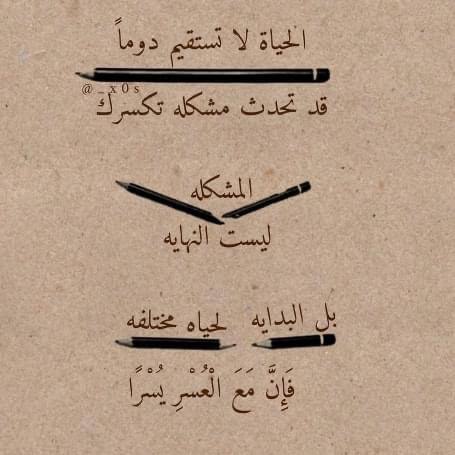 الحياة لا تستقيم دوماً
@_x0s
قد تحدث مشكله تكسرك
المشكله
ليست النهايه
بل البدايه لحياه مختلفه
فَإِنَّ مَعَ الْعُسْرِ يُسْرًا